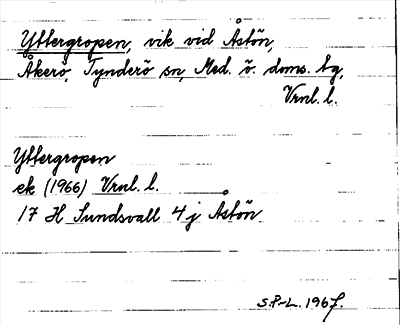 Yttergropen, vik vid Åstön,
Åkerö, Tynderö sn, Med. ö. doms. tg,
Vrnl. l.
Yttergropen
ek (1966) Vrnl. l.
17 H Sundsvall 4 j Åstön
S.P-L. 1967.